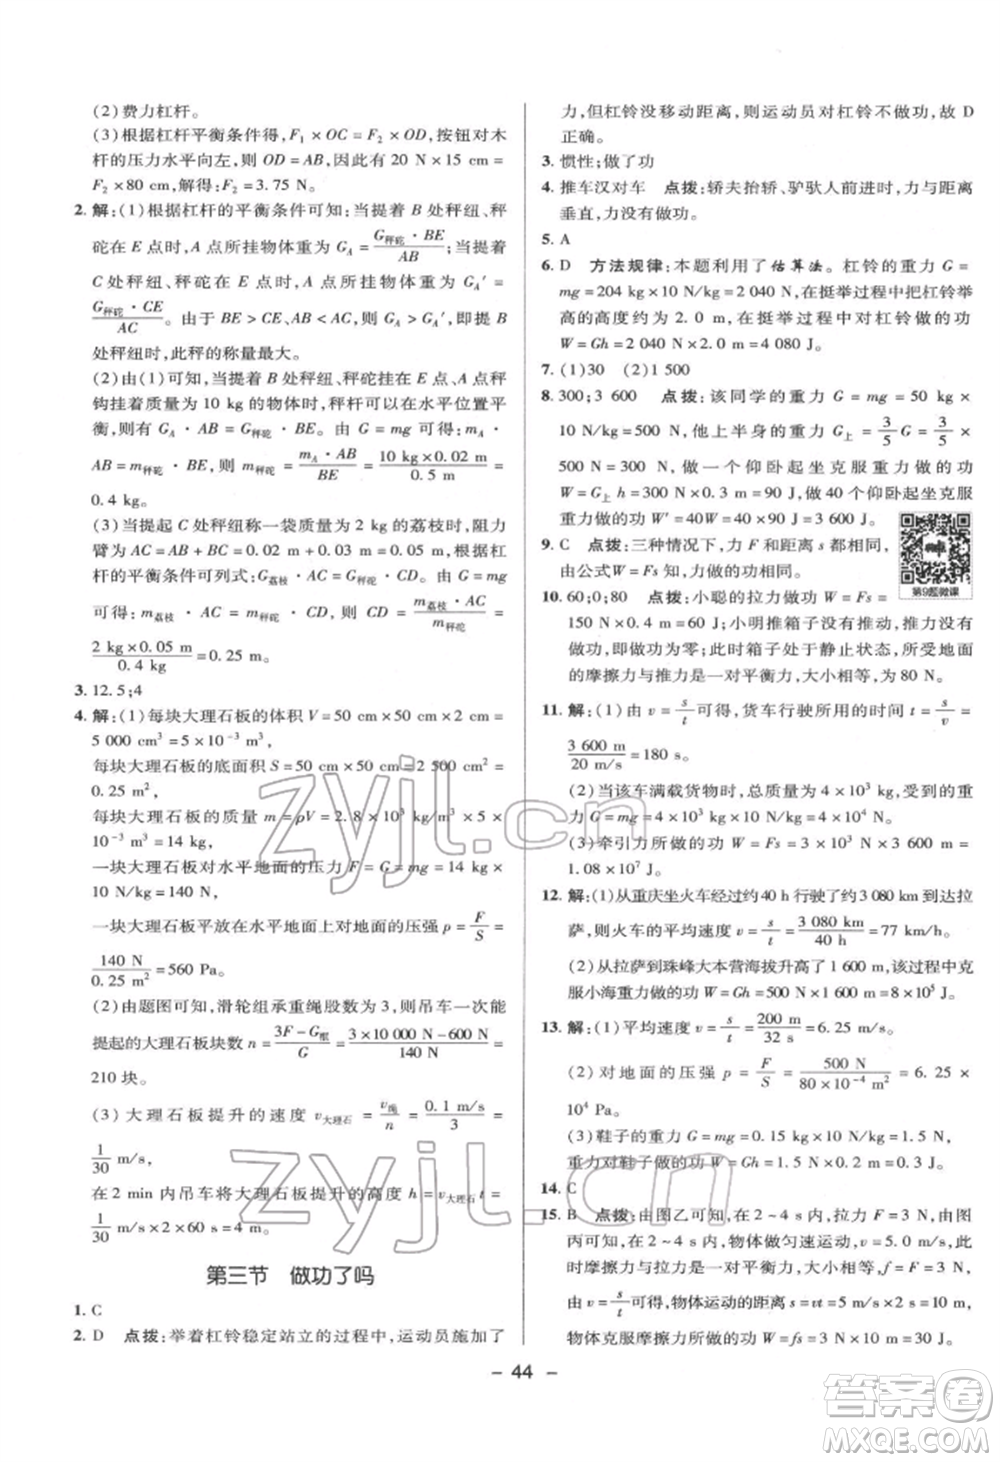 (2)费力杠杆。
(3)根据杠杆平衡条件得,F₁×OC=F₂×OD,按钮对木
杆的压力水平向左,则 OD=AB,因此有 20 N×15 cm=
F₂×80 cm,解得:F₂=3.75 N。
2. 解:(1)根据杠杆的平衡条件可知:当提着 B 处秤纽、秤
砣在 E 点时,A 点所挂物体重为 G_A=G秤砣·BE/AB;当提着
C 处秤纽、秤砣在 E 点时,A 点所挂物体重为 G_A′=
G秤砣·CE/AC。由于 BE>CE、AB<AC,则 G_A>G_A′,即提着
B 处秤纽时,此秤的称量最大。
(2)由(1)可知,当提着 B 处秤纽、秤砣挂在 E 点,秤
钩挂着质量为 10 kg 的物体时,秤杆可以在水平位置平
衡,有 G_A·AB=G秤砣·BE。由 G=mg 可得:m_A·
AB=m秤砣·BE,则 m秤砣=m_A·AB/BE=10 kg×0.02 m/0.5 m=
0.4 kg。
(3)当提起 C 处秤纽称一袋质量为 2 kg 的荔枝时,阻力
臂为 AC=AB+BC=0.02 m+0.03 m=0.05 m,根据杠
杆的平衡条件可列式:G荔枝·AC=G秤砣·CD。由 G=mg
可得:m荔枝·AC=m秤砣·CD,则 CD=m荔枝·AC/m秤砣=
2 kg×0.05 m/0.4 kg=0.25 m。
3. 12.5;4
4. 解:(1)每块大理石板的体积 V=50 cm×50 cm×2 cm=
5 000 cm³=5×10⁻³ m³,
每块大理石板的底面积 S=50 cm×50 cm=2 500 cm²=
0.25 m²,
每块大理石板的质量 m=ρV=2.8×10³ kg/m³×5×
10⁻³ m³=14 kg,
一块大理石板对水平地面的压力 F=G=mg=14 kg×
10 N/kg=140 N,
一块大理石板平放在水平地面上对地面的压强 p=F/S=
140 N/0.25 m²=560 Pa。
(2)由题图可知,滑轮组承重绳股数为 3,则吊车一次能
提起的大理石板块数 n=3F-G框/G=3×10 000 N-600 N/140 N=
210 块。
(3)大理石板提升的速度 v大理石=v绳/n=0.1 m/s/3=
1/30 m/s,
在 2 min 内吊车将大理石板提升的高度 h=v大理石 t=
1/30 m/s×2×60 s=4 m。
第三节 做功了吗
1. C
2. D 点拨:举着杠铃稳定站立的过程中,运动员施加了
力,但杠铃没移动距离,所以运动员对杠铃不做功,故 D
正确。
3. 惯性;做了功
4. 推车汉对车 点拨:轿夫抬轿、驴驮人前进时,力与距离
垂直,力没有做功。
5. A
6. D 方法规律:本题利用了估算法。杠铃的重力 G=
mg=204 kg×10 N/kg=2 040 N,在挺举过程中把杠铃举
高的高度约为 2.0 m,在挺举过程中对杠铃做的功
W=Gh=2 040 N×2.0 m=4 080 J。
7. (1)30 (2)1 500
8. 300;3 600 点拨:该同学的重力 G=mg=50 kg×
10 N/kg=500 N,他上半身的重力 G上=3/5G=3/5×
500 N=300 N。做一个仰卧起坐克服重力做的功
W=G上 h=300 N×0.3 m=90 J,做 40 个仰卧起坐克服
重力做的功 W′=40W=40×90 J=3 600 J。
9. C 点拨:三种情况下,力 F 和距离 s 都相同,
由公式W=Fs知,力做的功相同。
第9题微课
10. 60;0;80 点拨:小聪的拉力做功 W=Fs=
150 N×0.4 m=60 J;小明推箱子没有推动,推力没有
做功,即功为零;此时箱子处于静止状态,所受地面的
的摩擦力与推力是一对平衡力,大小相等,为 80 N。
11. 解:(1)由 v=s/t可得,货车行驶所用的时间 t=s/v=
3 600 m/20 m/s=180 s。
(2)当该车满载货物时,总质量为 4×10³ kg,受到的重
力 G=mg=4×10³ kg×10 N/kg=4×10⁴ N。
(3)牵引力所做的功 W=Fs=3×10³ N×3 600 m=
1.08×10⁷ J。
12. 解:(1)从重庆坐火车经过约40 h行驶了约3 080 km到达拉
萨,则火车的平均速度 v=s/t=3 080 km/40 h=77 km/h。
(2)从拉萨到珠峰大本营海拔提升了 1 600 m,该过程中克
服小海重力做的功 W=Gh=500 N×1 600 m=8×10⁵ J。
13. 解:(1)平均速度 v=s/t=200 m/32 s=6.25 m/s。
(2)对地面的压强 p=F/S=500 N/80×10⁻⁴ m²=6.25×
10⁴ Pa。
(3)鞋子的重力 G=mg=0.15 kg×10 N/kg=1.5 N,
重力对鞋子做的功 W=Gh=1.5 N×0.2 m=0.3 J。
14. C
15. B 点拨:由图乙可知,在 2~4 s 内,拉力 F=3 N,由图
丙可知,在 2~4 s 内,物体做匀速运动,v=5.0 m/s,此
时摩擦力与拉力是一对平衡力,大小相等,f=F=3 N,
由 v=s/t可得,物体运动的距离 s=vt=5 m/s×2 s=10 m,
物体克服摩擦力所做的功 W=fs=3 N×10 m=30 J。
- 44 -
zyjl.cn
zyjl.cn
答案圈
MXQE.COM